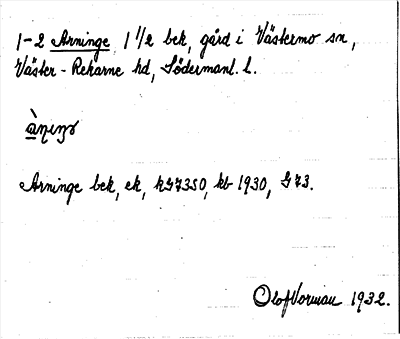 1-2 Arninge 1 1/2 bek, gård i Västermo sn,
Väster-Rekarne hd, Södermanl. l.
Arninge bek, ek, kG73S0, kb 1930, G73.
Olof Vorman 1932.